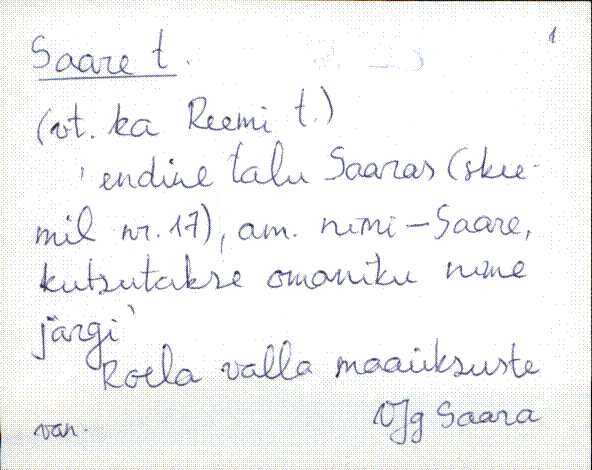 1
Saare t.
(vt. ka Reemi t.)
'endine talu Saaras (skee-
mil nr. 17), am. nimi – Saare,
kutsutakse omaniku nime
järgi'
Roela valla maaüksuste
VJg Saara
van.